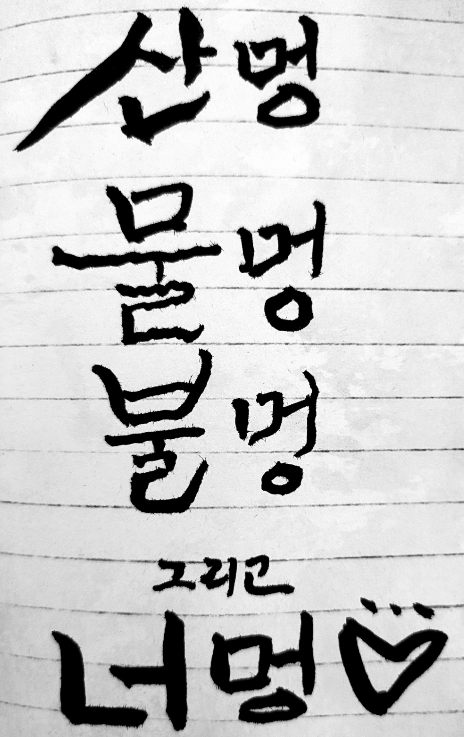 산멍
물멍
불멍
그리고
너멍♡